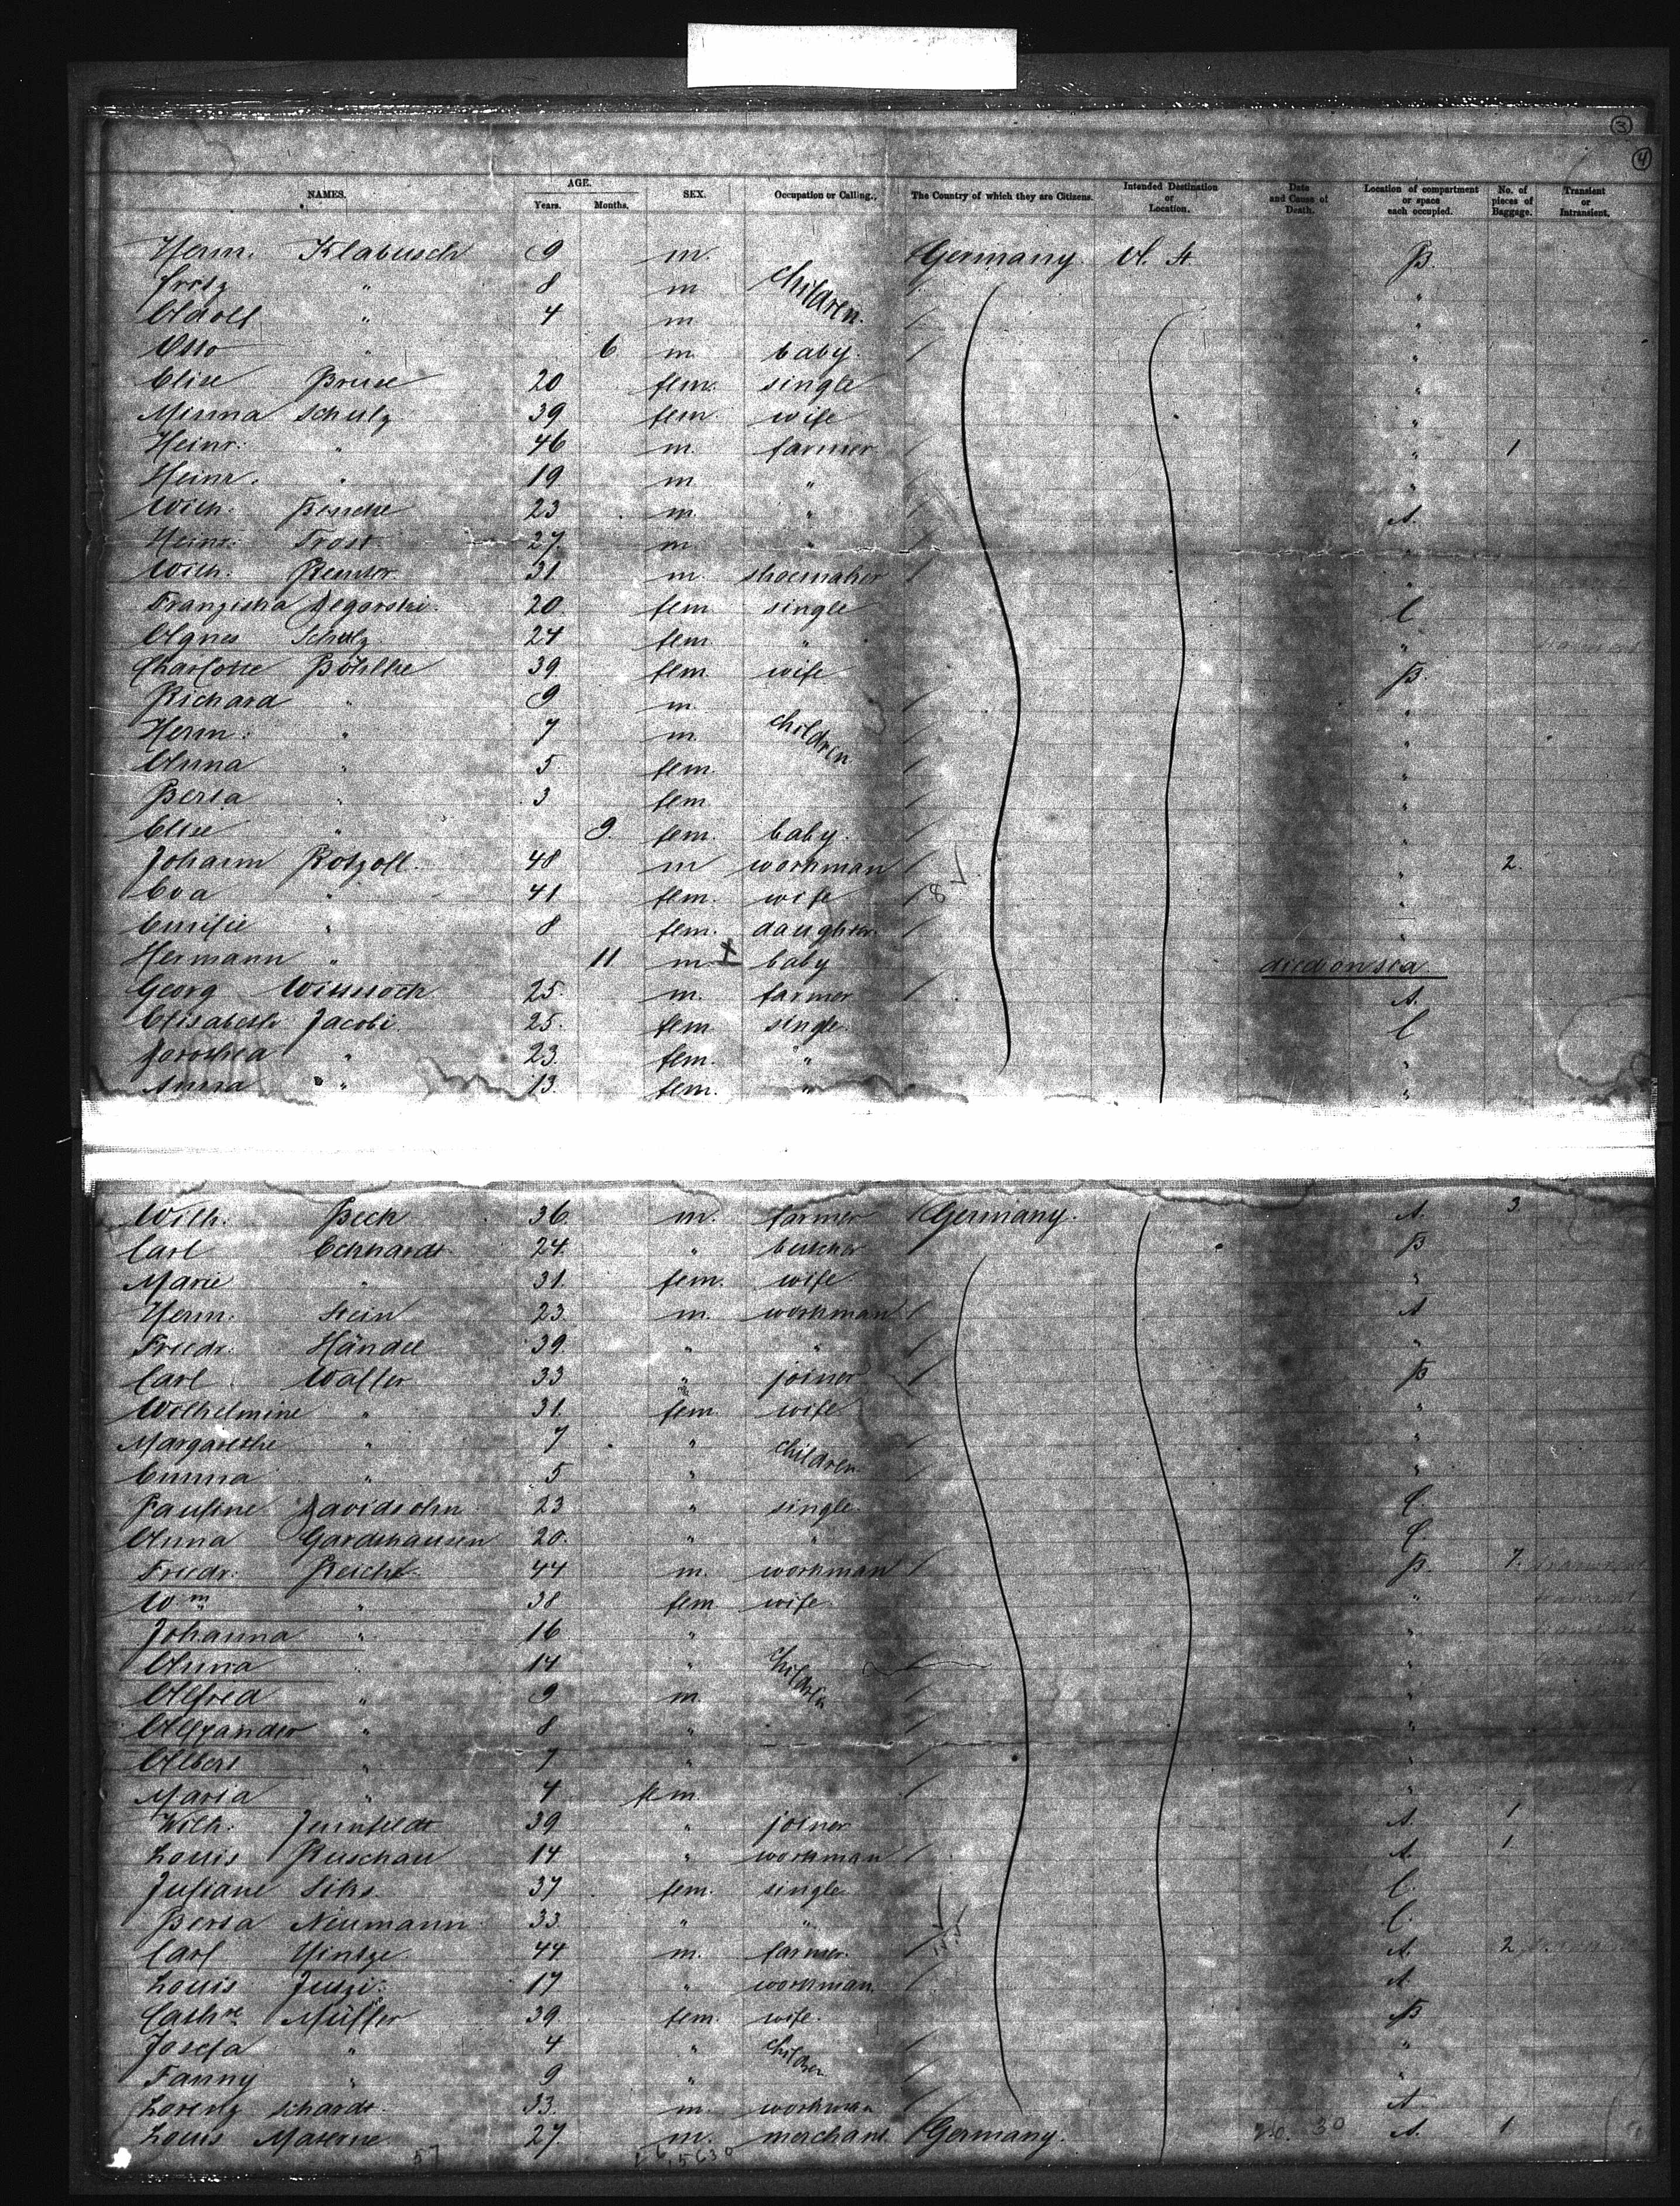 3
4
NAMES. AGE. Years. Months. SEX. Occupation or Calling., The Country of which they are Citizens. Intended Destination or Location. Date and Cause of Death. Location of compartment or space each occupied. No. of pieces of Baggage. Transient or Intransient.
Herm. Klabusch 9 m. children. Germany. U. St. B.
Fritz " 8 m "
Adolf " 4 m "
Otto " 6 m. baby. "
Elise Bruse 20 fem. single "
Minna Schulz 39 fem wife "
Heinr. " 46 m. farmer " 1
Heinr. " 19 m " "
Wilh. 23 m. " A.
Heinr. Frost 27. m. " "
Wilh. 31. m. shoemaker "
Franziska 20. fem. single C
Agnes Schulz 24 fem. " "
Charlotte Böhlke 39. fem. wife B.
Richard " 9 m. children "
Herm. " 7 m. "
Anna " 5 fem. "
Berta " 3 fem "
Elise " 9. fem. baby. "
Johann Rotzoll. 48 m workman " 2.
Eva " 41 fem. wife 8 "
Emilie " 8 fem. daughter. "
Hermann " 11 m. baby died on sea
Georg Wittstock 25. m. farmer A.
Elisabeth Jacobi 25. fem. single C
Dorothea " 23. fem. " "
Anna " 13. fem. " "
Wilh. Beck 36. m. farmer Germany. A. 3.
Carl Eckhardt 24. " butcher B
Marie " 31. fem. wife "
Herm. Stein 23. m. workman A
Friedr. Händel 39. " " "
Carl Walter 33 " joiner B
Wilhelmine " 31. fem. wife "
Margarethe " 7 " children "
Emma " 5 " "
Pauline Davidsohn 23 " single C.
Anna Gardshausen 20. " " C
Friedr. Reiche 44 m. workman B. 7.
Wm " 38 fem wife "
Johanna " 16 " children "
Anna " 14 " "
Alfred " 9 m. "
Alexander " 8 " "
Albert " 7 " "
Maria " 4 fem. "
Wilh. 39 " joiner A. 1
Louis Ruschau 14 " workman A. 1.
Juliane 37 fem. single C.
Berta Neumann 33. " " C.
Carl Hintze 44 m. farmer. A. 2
Louis 17 " workman. A
Cathne Müller 39. fem. wife. B
Josefa " 4 " children "
Fanny " 9 " "
Lorenz Schardt. 33. m. workman A.
Louis 27. m. merchant. Germany. A. 1
57